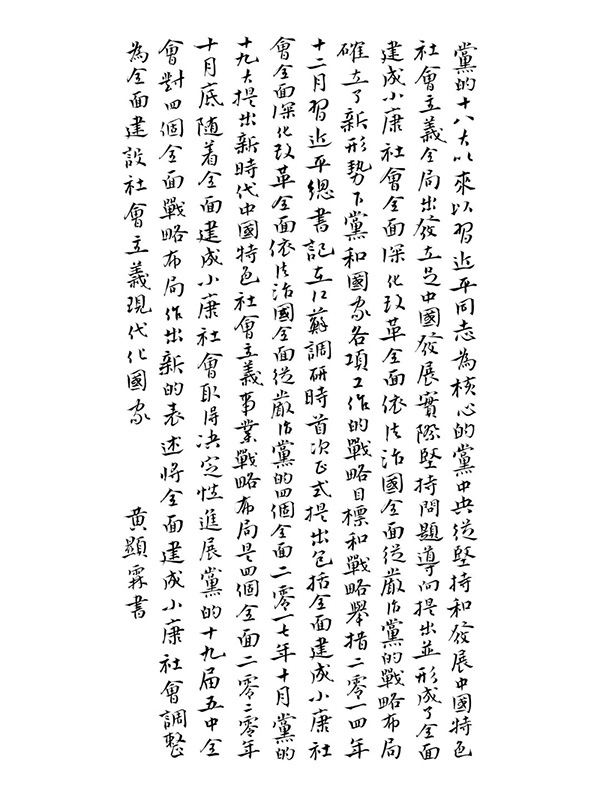 黨的十八大以來以習近平同志為核心的黨中央從堅持和發展中國特色
社會主義全局出發立足中國發展實際堅持問題導向提出並形成了全面
建成小康社會全面深化改革全面依法治國全面從嚴治黨的戰略布局
確立了新形勢下黨和國家各項工作的戰略目標和戰略舉措二零一四年
十二月習近平總書記在江蘇調研時首次正式提出包括全面建成小康社
會全面深化改革全面依法治國全面從嚴治黨的四個全面二零一七年十月黨的
十九大提出新時代中國特色社會主義事業戰略布局是四個全面二零二零年
十月底随着全面建成小康社會取得决定性進展黨的十九届五中全
會對四個全面戰略布局作出新的表述將全面建成小康社會調整
為全面建設社會主義現代化國家 黄顯霖書